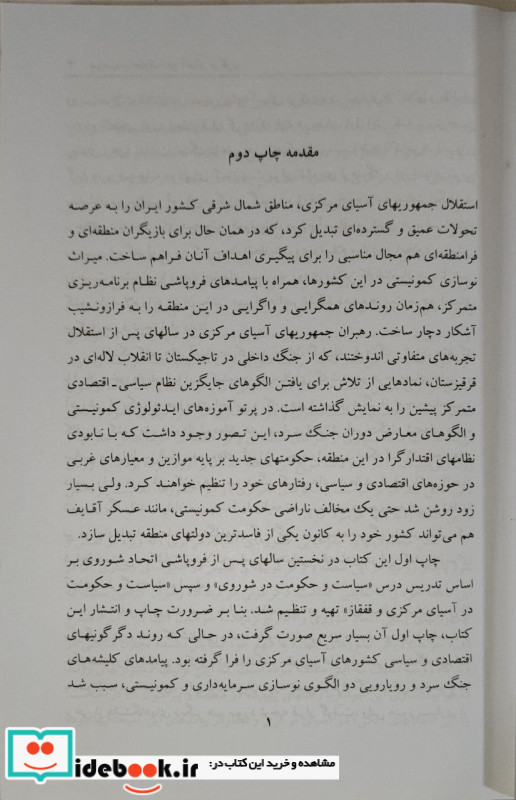 مقدمه چاپ دوم
استقلال جمهوریهای آسیای مرکزی، مناطق شمال شرقی کشور ایران را به عرصه
تحولات عمیق و گسترده‌ای تبدیل کرد، که در همان حال برای بازیگران منطقه‌ای و
فرامنطقه‌ای هم مجال مناسبی را برای پیگیری اهداف آنان فراهم ساخت. میراث
نوسازی کمونیستی در این کشورها، همراه با پیامدهای فروپاشی نظام برنامه‌ریزی
متمرکز، هم‌زمان روندهای همگرایی و واگرایی در این منطقه را به فرازونشیب
آشکار دچار ساخت. رهبران جمهوریهای آسیای مرکزی در سالهای پس از استقلال
تجربه‌های متفاوتی اندوختند، که از جنگ داخلی در تاجیکستان تا انقلاب لاله‌ای در
قرقیزستان، نمادهایی از تلاش برای یافتن الگوهای جایگزین نظام سیاسی ـ اقتصادی
متمرکز پیشین را به نمایش گذاشته است. در پرتو آموزه‌های ایدئولوژی کمونیستی
و الگوهای معارض دوران جنگ سرد، این تصور وجود داشت که با نابودی
نظامهای اقتدارگرا در این منطقه، حکومتهای جدید بر پایه موازین و معیارهای غربی
در حوزه‌های اقتصادی و سیاسی، رفتارهای خود را تنظیم خواهند کرد. ولی بسیار
زود روشن شد حتی یک مخالف ناراضی حکومت کمونیستی، مانند عسکر آقایف
هم می‌تواند کشور خود را به کانون یکی از فاسدترین دولتهای منطقه تبدیل سازد.
چاپ اول این کتاب در نخستین سالهای پس از فروپاشی اتحاد شوروی بر
اساس تدریس درس «سیاست و حکومت در شوروی» و سپس «سیاست و حکومت
در آسیای مرکزی و قفقاز» تهیه و تنظیم شد. بنا بر ضرورت چاپ و انتشار این
کتاب، چاپ اول آن بسیار سریع صورت گرفت، در حالی که روند دگرگونیهای
اقتصادی و سیاسی کشورهای آسیای مرکزی را فرا گرفته بود. پیامدهای کلیشه‌های
جنگ سرد و رویارویی دو الگوی نوسازی سرمایه‌داری و کمونیستی، سبب شد
۱
مشاهده و خرید این کتاب در:
idebook.ir